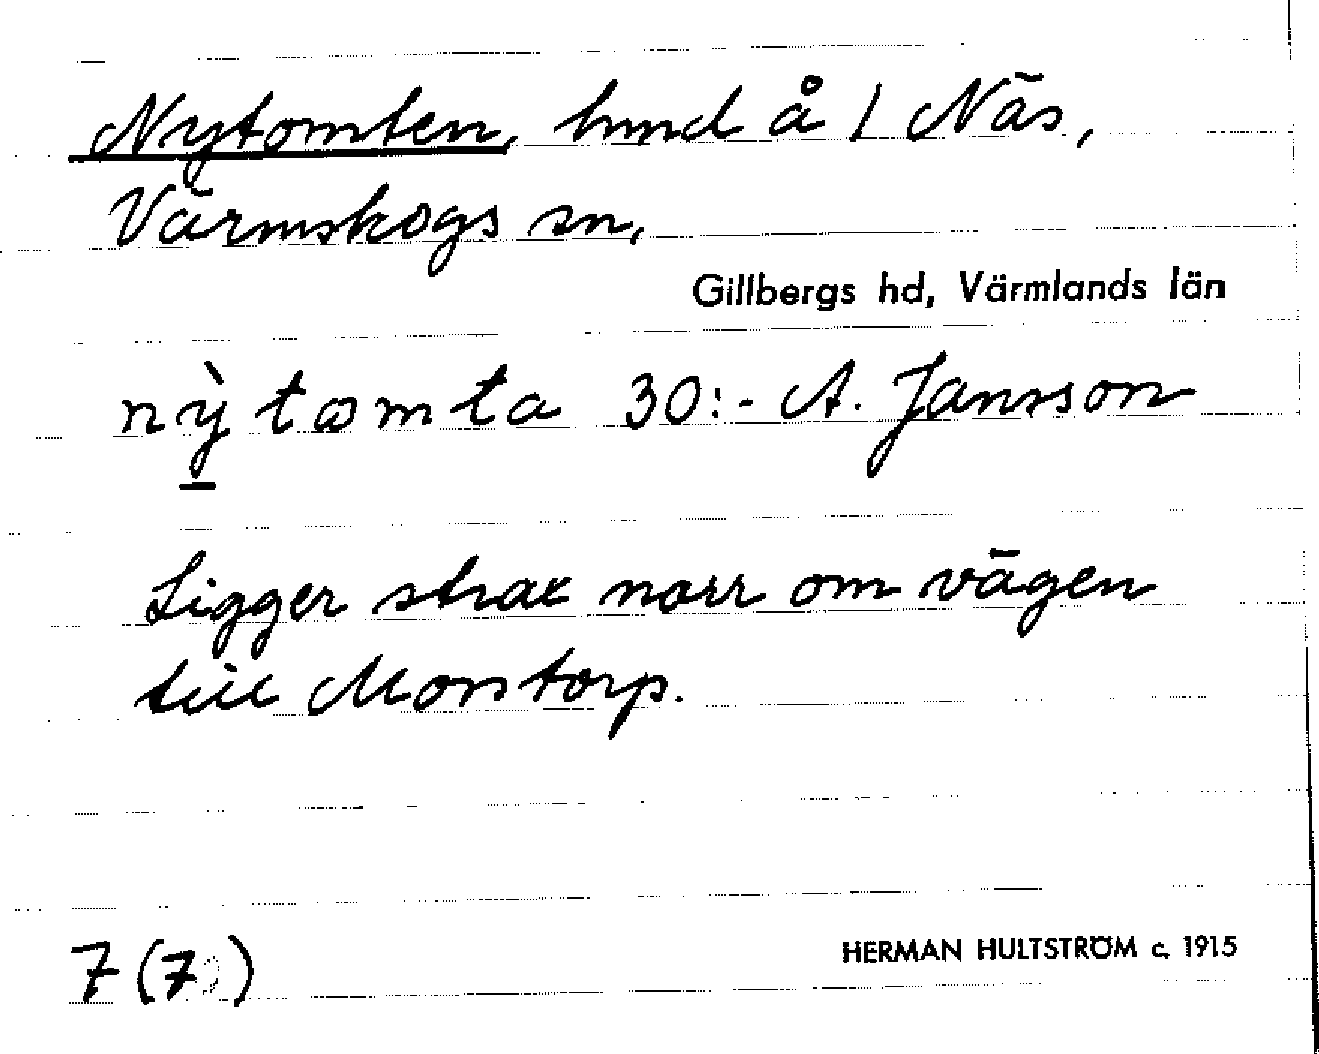 Nytomten, hmd å 1 Näs,
Värmskogs sn,
Gillbergs hd, Värmlands län
nỳtomta 30:- A. Jansson
Ligger strax norr om vägen
till Monstorp.
7 (7)
HERMAN HULTSTRÖM c. 1915